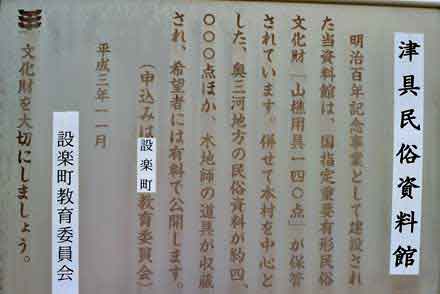 津具民俗資料館
明治百年記念事業として建設され
た当資料館は、国指定重要有形民俗
文化財「山樵用具一四〇点」が保管
されています。併せて本村を中心と
した、奥三河地方の民俗資料が約四、
〇〇〇点ほか、木地師の道具が収蔵
され、希望者には有料で公開します。
(申込みは設楽町教育委員会)
平成三年一一月
設楽町教育委員会
文化財を大切にしましょう。